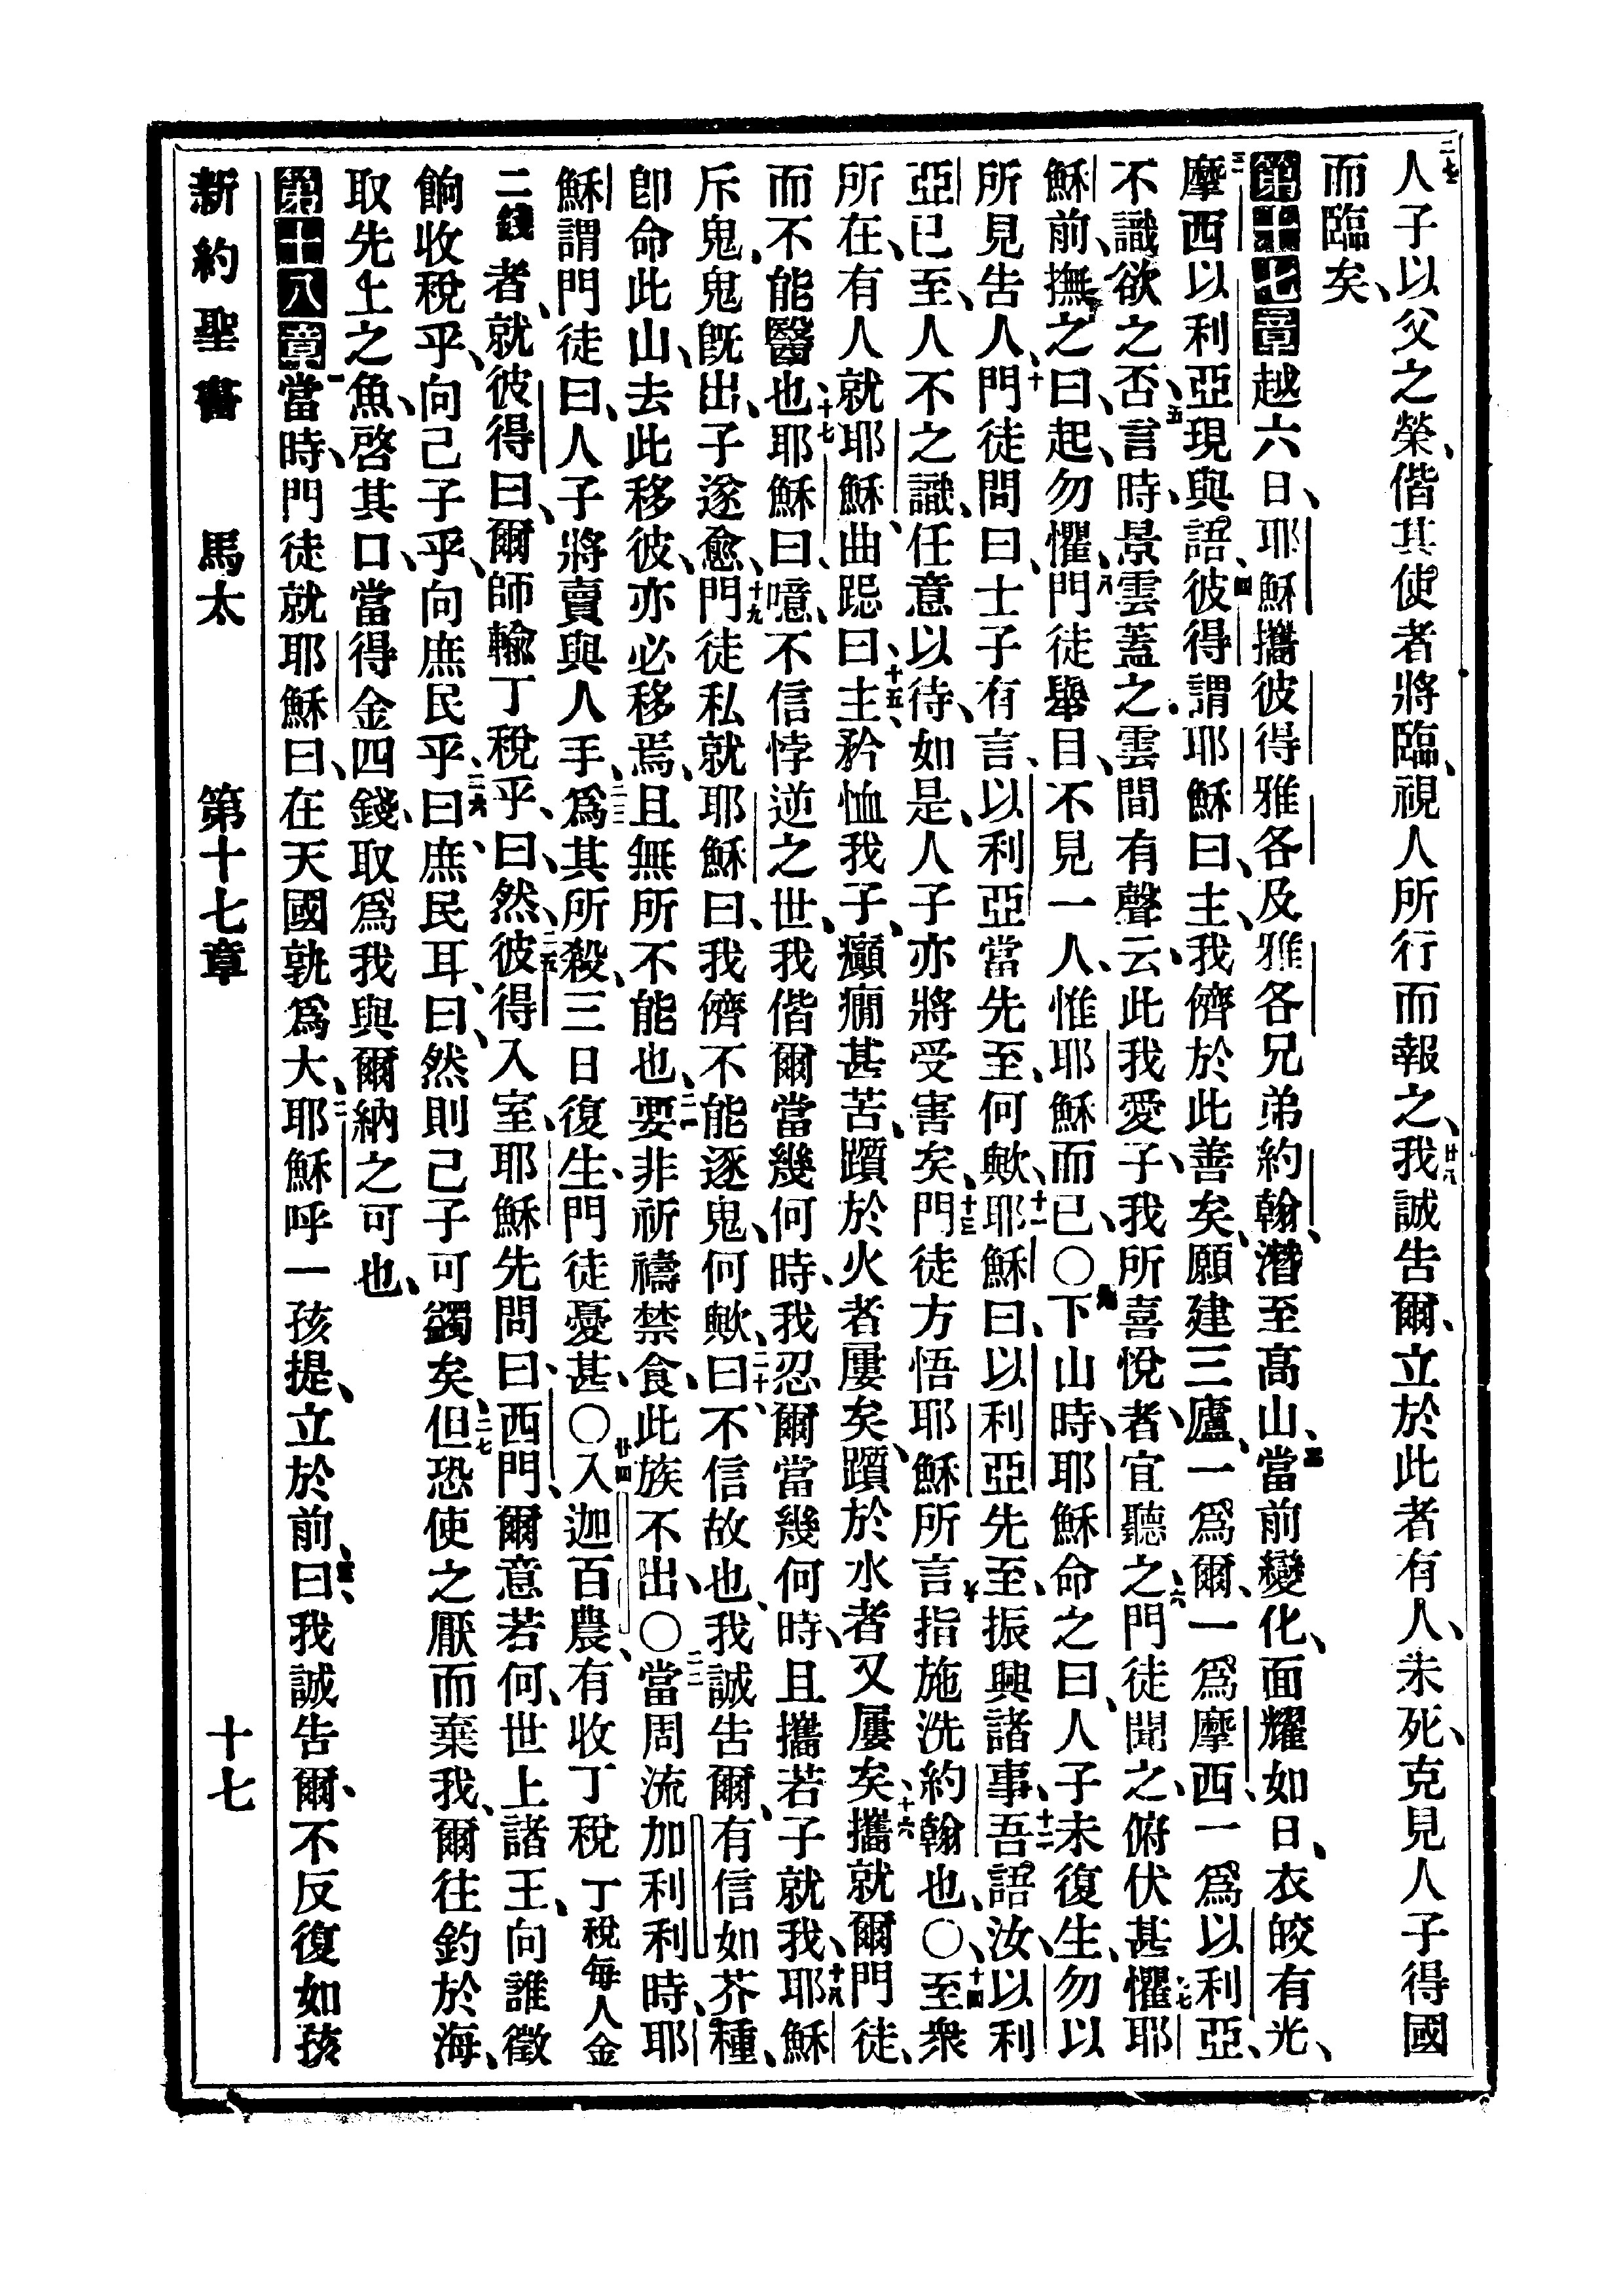 二七人子以父之榮、偕其使者將臨、視人所行而報之、廿八我誠告爾、立於此者有人、未死、克見人子得國
而臨矣、
第十七章越六日、耶穌攜彼得雅各及雅各兄弟約翰、潛至高山、當前變化、面耀如日、衣皎有光、
三摩西以利亞現、與語、四彼得謂耶穌曰、主、我儕於此善矣、願建三廬、一爲爾、一爲摩西、一爲以利亞、
不識欲之否、五言時、景雲蓋之、雲間有聲云、此我愛子、我所喜悅者、宜聽之、六門徒聞之、俯伏甚懼、七耶
穌前、撫之曰、起、勿懼、八門徒舉目、不見一人、惟耶穌而已、○九下山時、耶穌命之曰、人子未復生、勿以
所見告人、十門徒問曰、士子有言、以利亞當先至、何歟、十一耶穌曰、以利亞先至、振興諸事、十二吾語汝、以利
亞已至、人不之識、任意以待、如是、人子亦將受害矣、十三門徒方悟耶穌所言、指施洗約翰也、○十四至衆
所在、有人就耶穌曲跽曰、十五主、矜恤我子、癲癇甚苦、躓於火者屢矣、躓於水者又屢矣、十六攜就爾門徒、
而不能醫也、十七耶穌曰、噫、不信悖逆之世、我偕爾當幾何時、我忍爾當幾何時、且攜若子就我、十八耶穌
斥鬼、鬼旣出、子遂愈、十九門徒私就耶穌曰、我儕不能逐鬼、何歟、二十曰、不信故也、我誠告爾、有信如芥種、
卽命此山、去此移彼、亦必移焉、且無所不能也、二一要非祈禱禁食、此族不出、○二二當周流加利利時、耶
穌謂門徒曰、人子將賣與人手、二三爲其所殺、三日復生、門徒憂甚、○廿四入迦百農、有收丁稅丁稅每人金
二錢者、就彼得曰、爾師輸丁稅乎、曰、然、二五彼得入室、耶穌先問曰、西門、爾意若何、世上諸王、向誰徵
餉收稅乎、向己子乎、向庶民乎、二六曰、庶民耳、曰、然則己子可蠲矣、二七但恐使之厭而棄我、爾往釣於海、
取先上之魚、啓其口、當得金四錢、取爲我與爾納之可也、
第十八章一當時、門徒就耶穌曰、在天國孰爲大、二耶穌呼一孩提、立於前、曰、我誠告爾、不反復如孩
新約聖書　馬太　第十七章　十七